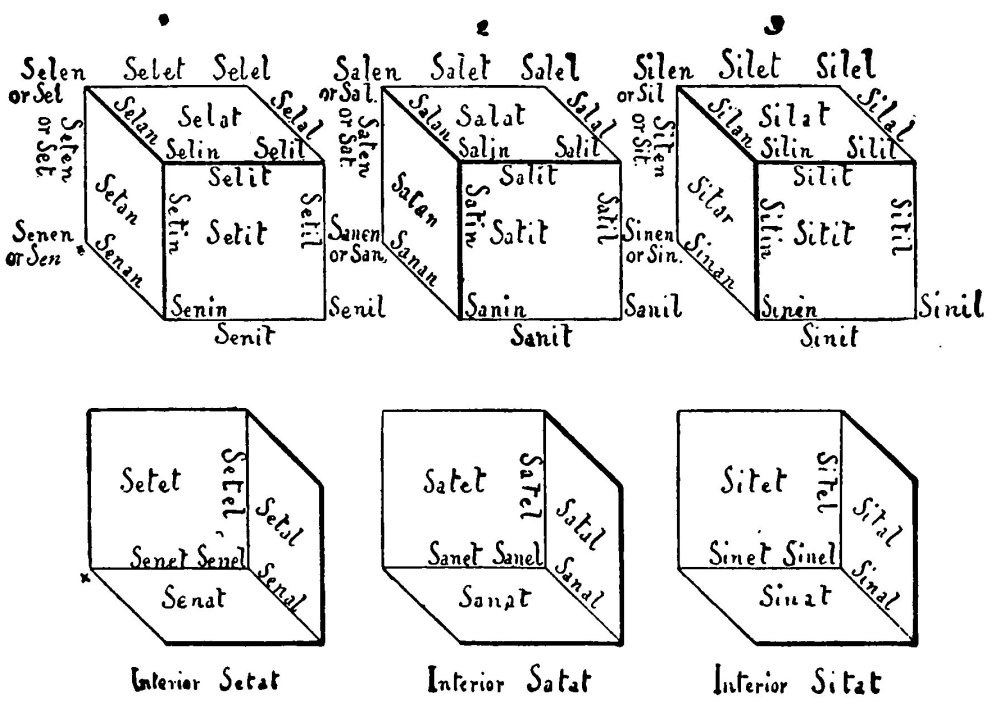 1 2 3
Selen Selet Selel
or Sel
Seten
or Set
Selan Selat Selal
Selin Selil
Selit
Setan Setin Setit Setil
Senen
or Sen
Senan
Senin Senil
Senit
Salen Salet Salel
or Sal.
Saten
or Sat.
Salan Salat Salal
Salin Salil
Salit
Satan Satin Satit Satil
Sanen
or San.
Sanan
Sanin Sanil
Sanit
Silen Silet Silel
or Sil
Siten
or Sit.
Silan Silat Silal
Silin Silil
Silit
Sitan Sitin Sitit Sitil
Sinen
or Sin.
Sinan
Sinin Sinil
Sinit
Setet Setel Setal
Senet Senel Senal
Senat
Interior Setat
Satet Satel Satal
Sanet Sanel Sanal
Sanat
Interior Satat
Sitet Sitel Sital
Sinet Sinel Sinal
Sinat
Interior Sitat